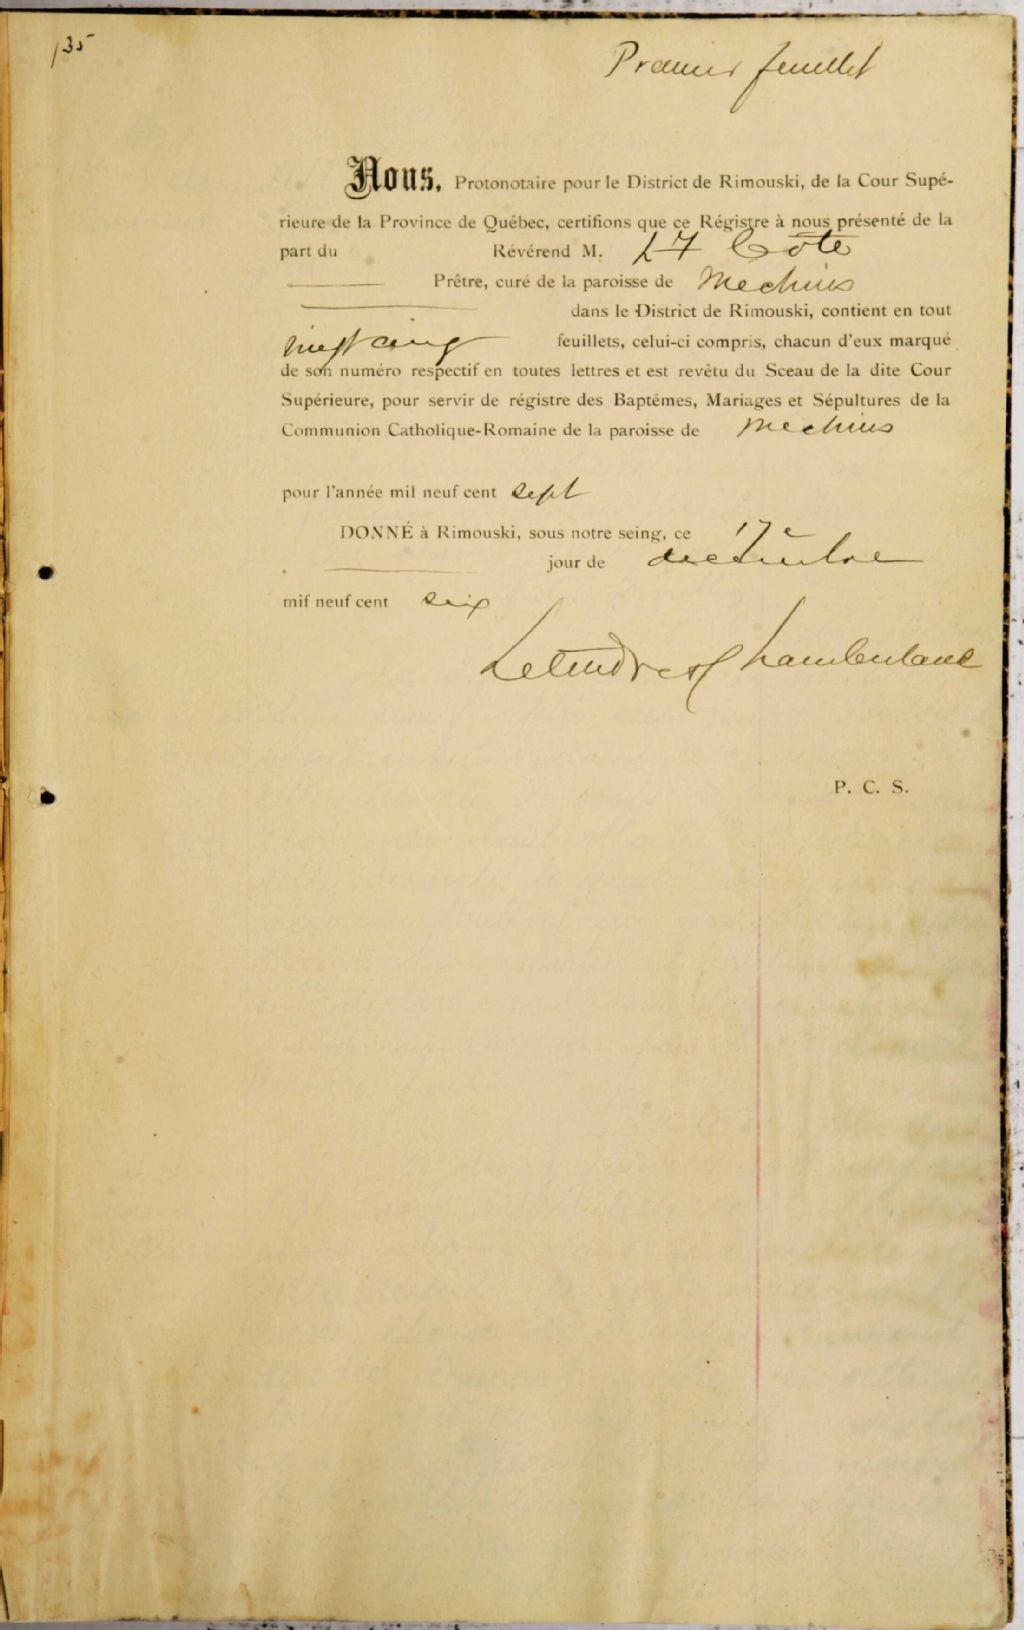 135
Premier feuillet
Nous, Protonotaire pour le District de Rimouski, de la Cour Supé-
rieure de la Province de Québec, certifions que ce Régistre à nous présenté de la
part du Révérend M. L F Côté
Prêtre, curé de la paroisse de Mechins
dans le District de Rimouski, contient en tout
vingt cinq feuillets, celui-ci compris, chacun d'eux marqué
de son numéro respectif en toutes lettres et est revêtu du Sceau de la dite Cour
Supérieure, pour servir de régistre des Baptêmes, Mariages et Sépultures de la
Communion Catholique-Romaine de la paroisse de Mechins
pour l'année mil neuf cent sept
DONNÉ à Rimouski, sous notre seing, ce 17e
jour de decembre
mil neuf cent six
Letendre & Chamberland
P. C. S.